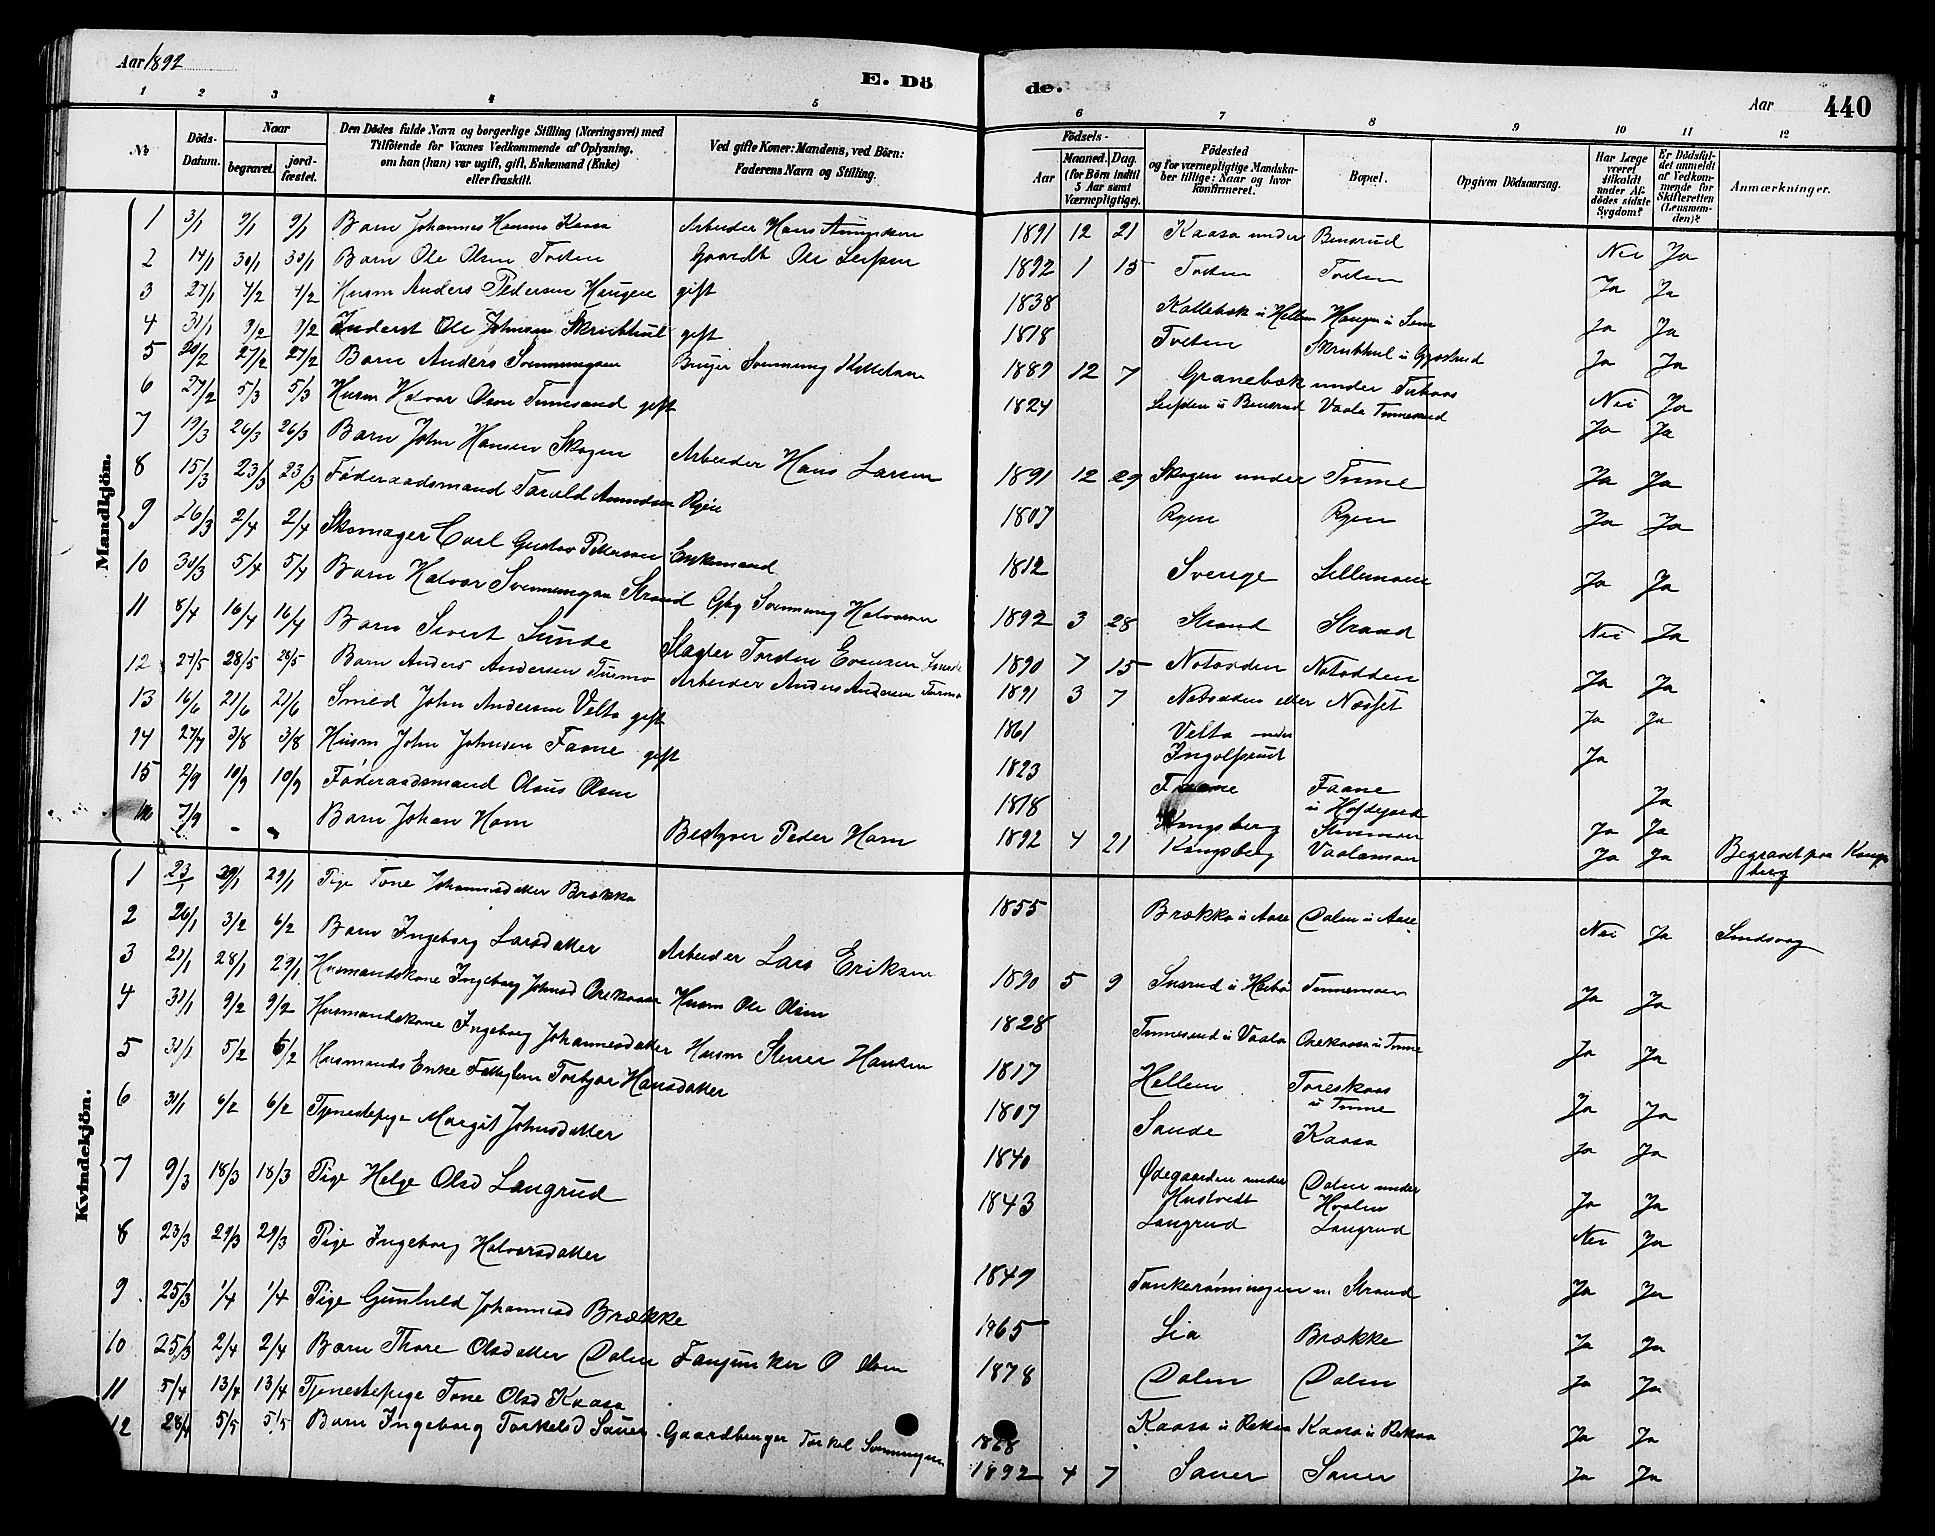 Aar 1892 E. Dö de. Aar 440
1 2 3 4 5 6 7 8 9 10 11 12
№ Döds-Datum. Naar begravet. jord-fæstet. Den Dödes fulde Navn og borgerlige Stilling (Næringsvei) med Tilföiende for Voxnes Vedkommende af Oplysning, om han (hun) var ugift, gift, Enkemand (Enke) eller fraskilt. Ved gifte Koner: Mandens, ved Börn: Faderens Navn og Stilling. Födsels- Aar Maaned. Dag. (for Börn indtil 5 Aar samt Værnepligtige). Födested og for værnepligtige Mandskaber tillige: Naar og hvor konfirmeret. Bopæl. Opgiven Dödsaarsag. Har Læge været tilkaldt under Afdödes sidste Sygdom? Er Dödsfaldet anmeldt af Vedkommende for Skifteretten (Lensmanden)? Anmærkninger.
Mandkjön.
1 3/1 9/1 9/1 Barn Johannes Hansen Kaasa Arbeider Hans 1891 12 21 Kaasa under Bensrud Nei Ja
2 14/1 30/1 30/1 Barn Ole Olsen Tveten Gaardb Ole Leifsen 1892 1 15 Tveten Tveten Ja Ja
3 27/1 4/2 4/2 Husm Anders Pedersen Haugen gift 1838 Kallebæk u Hellem Haugen u Sem Ja Ja
4 31/1 9/2 9/2 Inderst Ole Johnsen Skrubhul gift 1818 Tveten Skrubhul u Ja Ja
5 20/2 27/2 27/2 Barn Anders Svenningsen Svenning 1889 12 7 Granebæk under Nei Ja
6 27/2 5/3 5/3 Husm Halvor Olsen Tinnesand gift 1824 u Bensrud Vaala Tinnesand Ja Ja
7 19/3 26/3 26/3 Barn John Hansen Skogen Arbeider Hans Larsen 1891 12 29 Skogen under Tinne Ja Ja
8 15/3 23/3 23/3 Föderaadsmand Tarald Amundsen Ryen 1807 Ryen Ryen Ja Ja
9 26/3 2/4 2/4 Skomager Carl Gustav Pettersen Enkemand 1812 Sverige Lillemoen Ja Ja
10 30/3 5/4 5/4 Barn Halvor Svennungsen Strand Gbg Svennung Halvorsen 1892 3 28 Strand Strand Nei Ja
11 8/4 16/4 16/4 Barn Sivert Lunde Slagter Torsten Evensen Lunde 1890 7 15 Notodden Notodden Ja Ja
12 24/5 28/5 28/5 Barn Anders Andersen Turmo Arbeider Anders Andersen Turmo 1891 3 7 Notodden eller Næsset Ja Ja
13 16/6 21/6 21/6 Smed John Andersen Velta gift 1861 Velta under Ingolfsrud Ja
14 27/7 3/8 3/8 Husm John Johnsen Faane gift 1823 Faane Faane u Hofdegaard Ja
15 2/9 10/9 10/9 Föderaadsmand Olaus Olsen 1818 Kongsberg Ja Ja
7/9 - - Barn Johan Horn Bestyrer Peder Horn 1892 4 21 Kongsberg Vaalamoen Ja Ja Begravet paa Kongsberg
Kvindekjön.
1 23/1 29/1 29/1 Pige Tone Johannesdatter Brække 1855 Brække u Aase Dalen u Aase Nei Ja Sindsvag
2 26/1 3/2 6/2 Barn Ingeborg Larsdatter Arbeider Lars Eriksen 1890 5 9 Tinnemoen Ja Ja
3 21/1 28/1 29/1 Husmandskone Ingeborg Johnsd Husm Ole Olsen 1828 Tinnesand u Vaala u Tinne Ja Ja
4 31/1 9/2 9/2 Husmandskone Ingeborg Johannesdatter Husm Stener Hansen 1817 Hellem Toreskaas u Tinne Ja Ja
5 31/1 5/2 5/2 Husmands Enke Fattiglem Torbjör Hansdatter 1807 Sande Kaasa Ja Ja
6 31/1 6/2 6/2 Tjenestepige Margit Johnsdatter 1840 Ödegaarden under Hustvedt Dalen under Ja Ja
7 9/3 18/3 18/3 Pige Helge Olsd Langrud 1843 Langrud Langrud Nei Ja
8 23/3 29/3 29/3 Pige Ingeborg Halvorsdatter 1849 Strand Ja Ja
9 25/3 1/4 1/4 Pige Gunhild Johannesd Brække 1865 Lia Brække Ja Ja
10 25/3 2/4 2/4 Barn Thore Olsdatter Dalen Fanjunker O Olsen 1878 Dalen Dalen Ja Ja
11 5/4 13/4 13/4 Tjenestepige Tone Olsd Kaasa 1868 Kaasa u Reksaa Kaasa u Reksaa Ja Ja
12 28/4 5/5 5/5 Barn Ingeborg Torkelsd Sauer Gaardbruger Torkel Svenningsen 1892 4 7 Sauer Sauer Ja Ja